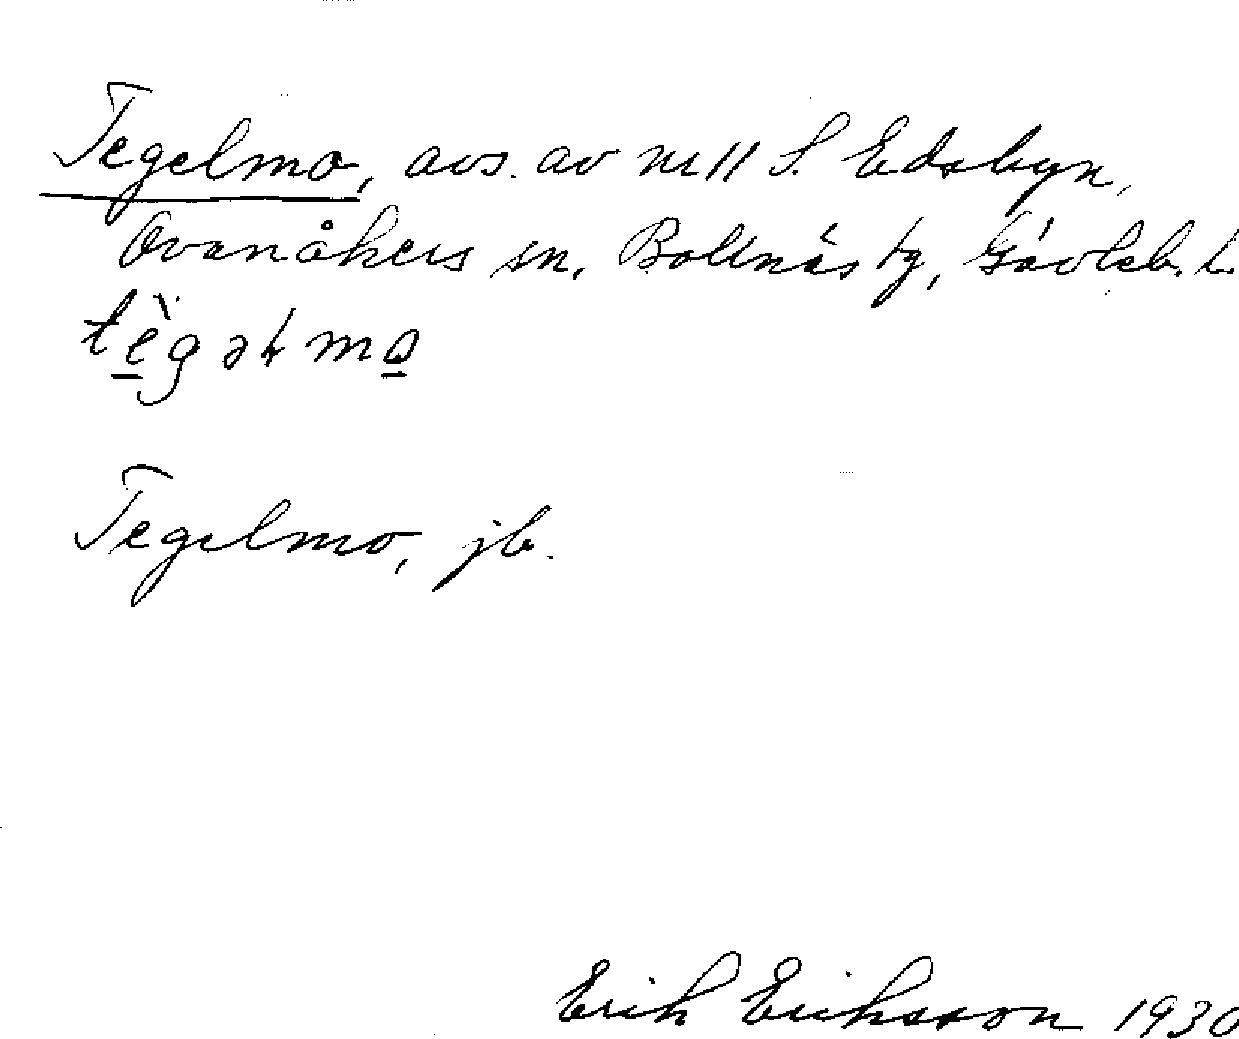 Tegelmo, avs. av nr 11 S. Edsbyn,
Ovanåkers sn, Bollnäs tg, Gävleb. l.
tè̱gəɫmo̱
Tegelmo, jb.
Erik Eriksson 1930